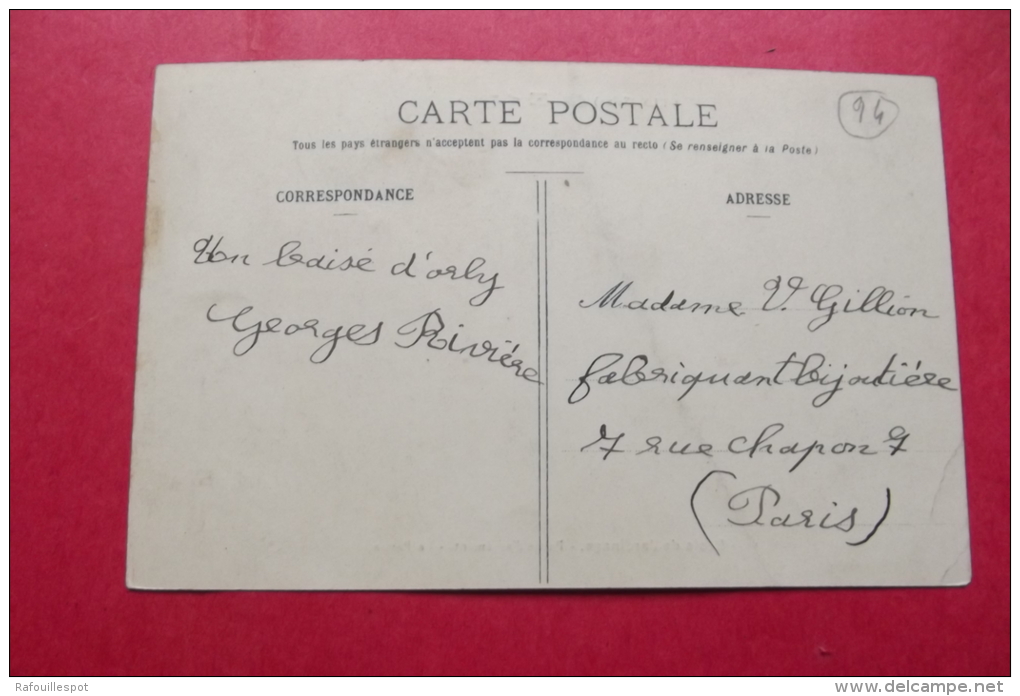 CARTE POSTALE
94
Tous les pays étrangers n'acceptent pas la correspondance au recto (Se renseigner à la Poste)
CORRESPONDANCE
Un baisé d'orly
Georges Rivière
ADRESSE
Madame V. Gillion
fabriquant bijoutière
7 rue Chapon 7
(Paris)
Rafouillespot
www.delcampe.net